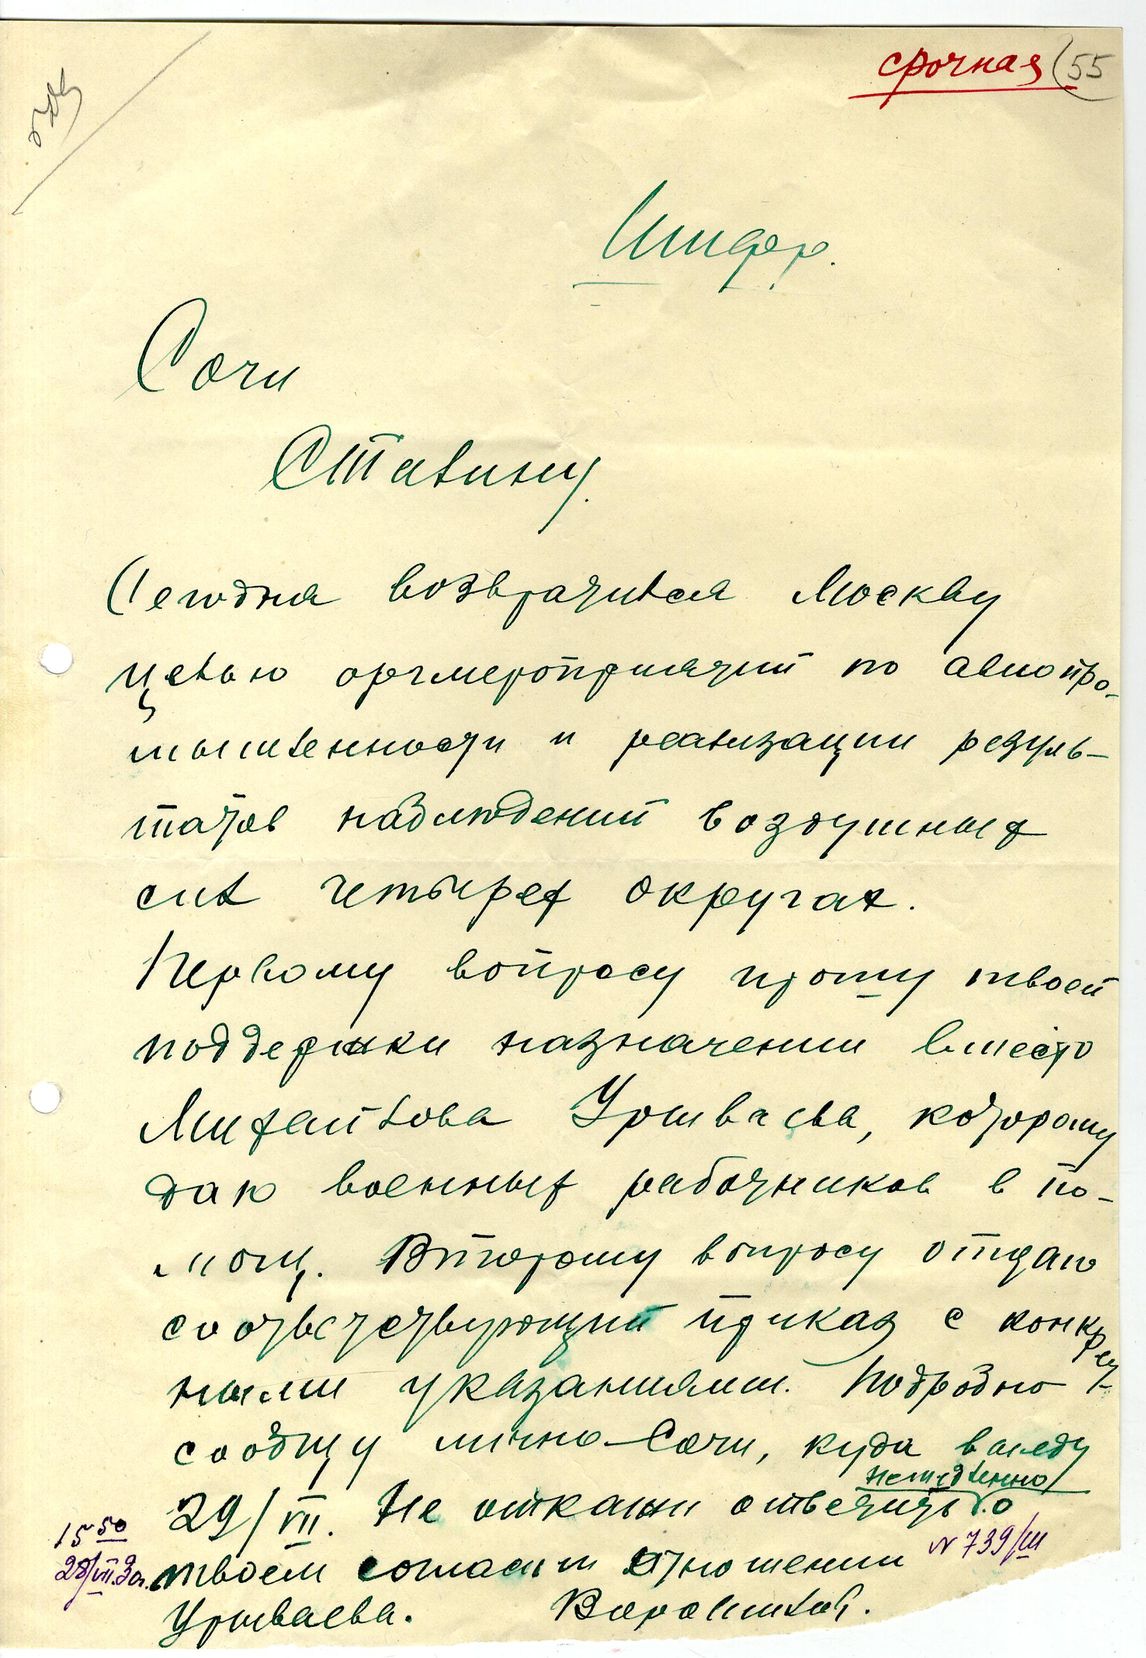 срочная 55
Шифр.
Сочи
Сталину.
Сегодня возвратился Москву
целью оргмероприятий по авиопро-
мышленности и реализации резуль-
татов наблюдений воздушных
сил четырех округах.
Первому вопросу прошу твоей
поддержки назначении вместо
Михайлова Урываева, которому
даю военных работников в по-
мощ. Второму вопросу отдаю
соответствующий приказ с конкрет-
ными указаниями. Подробно
сообщу лично Сочи, куда выеду
немедленно
29/VII. Не откажи ответить о
твоем согласии отношении
Урываева. Ворошилов.
15 50
28/VII.30г.
N 739/ш